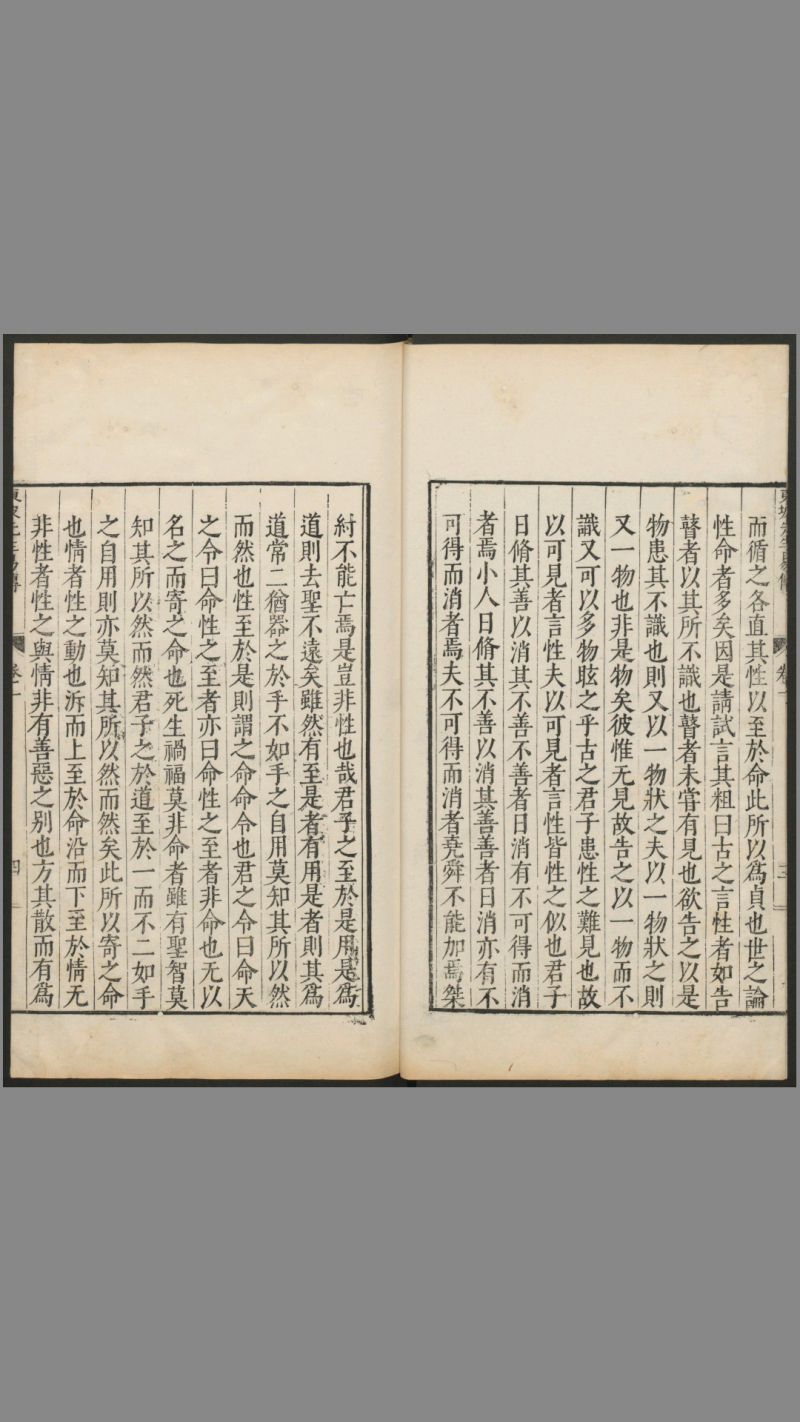 而循之各直其性以至於命此所以爲貞也世之論
性命者多矣因是請試言其粗曰古之言性者如告
瞽者以其所不識也瞽者未甞有見也欲告之以是
物患其不識也則又以一物狀之夫以一物狀之則
又一物也非是物矣彼惟无見故告之以一物而不
識又可以多物眩之乎古之君子患性之難見也故
以可見者言性夫以可見者言性皆性之似也君子
日脩其善以消其不善不善者日消有不可得而消
者焉小人日脩其不善以消其善善者日消亦有不
可得而消者焉夫不可得而消者堯舜不能加焉桀
紂不能亡焉是豈非性也哉君子之至於是用是爲
道則去聖不遠矣雖然有至是者有用是者則其爲
道常二猶器之於手不如手之自用莫知其所以然
而然也性至於是則謂之命命令也君之令曰命天
之令曰命性之至者亦曰命性之至者非命也无以
名之而寄之命也死生禍福莫非命者雖有聖智莫
知其所以然而然君子之於道至於一而不二如手
之自用則亦莫知其所以然而然矣此所以寄之命
也情者性之動也泝而上至於命沿而下至於情无
非性者性之與情非有善惡之别也方其散而有爲
卷一
四